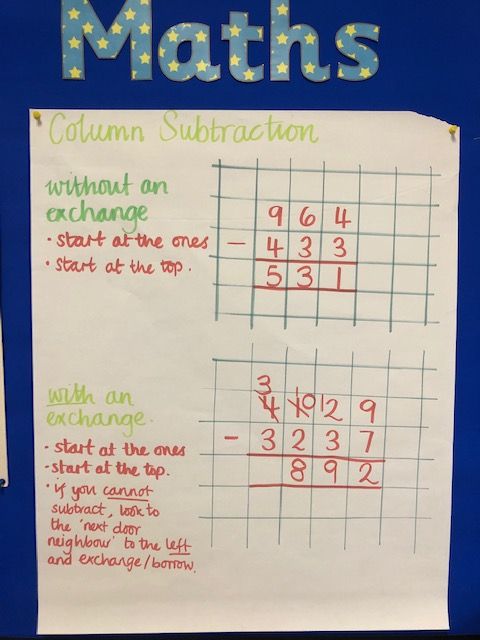 Maths
Column Subtraction
without an
exchange
• start at the ones
• start at the top.
9 6 4
- 4 3 3
5 3 1
with an
exchange.
• start at the ones
- start at the top.
• if you cannot
subtract, look to
the 'next door
neighbour' to the left
and exchange/borrow.
3
4 1 10 12 9
- 3 2 3 7
8 9 2